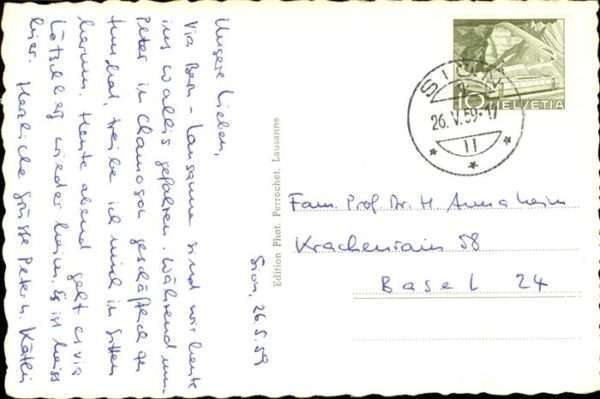 Sion, 26.5.59
Unsere Lieben,
Via Bern - Lausanne sind wir heute
ins Wallis gefahren. Während nun
Peter in Chamoson geschäftlich zu
tun hat, treibe ich mich in Sitten
herum. Heute abend geht es via
Lötschberg wieder heim. Es ist heiss
hier. Herzliche Grüsse Peter u. Käthi
Edition Phot. Perrochet, Lausanne
10 HELVETIA
SION
26.V.59-17
11
Fam. Prof. Dr. H. Annaheim
Krachenrain 58
Basel 24